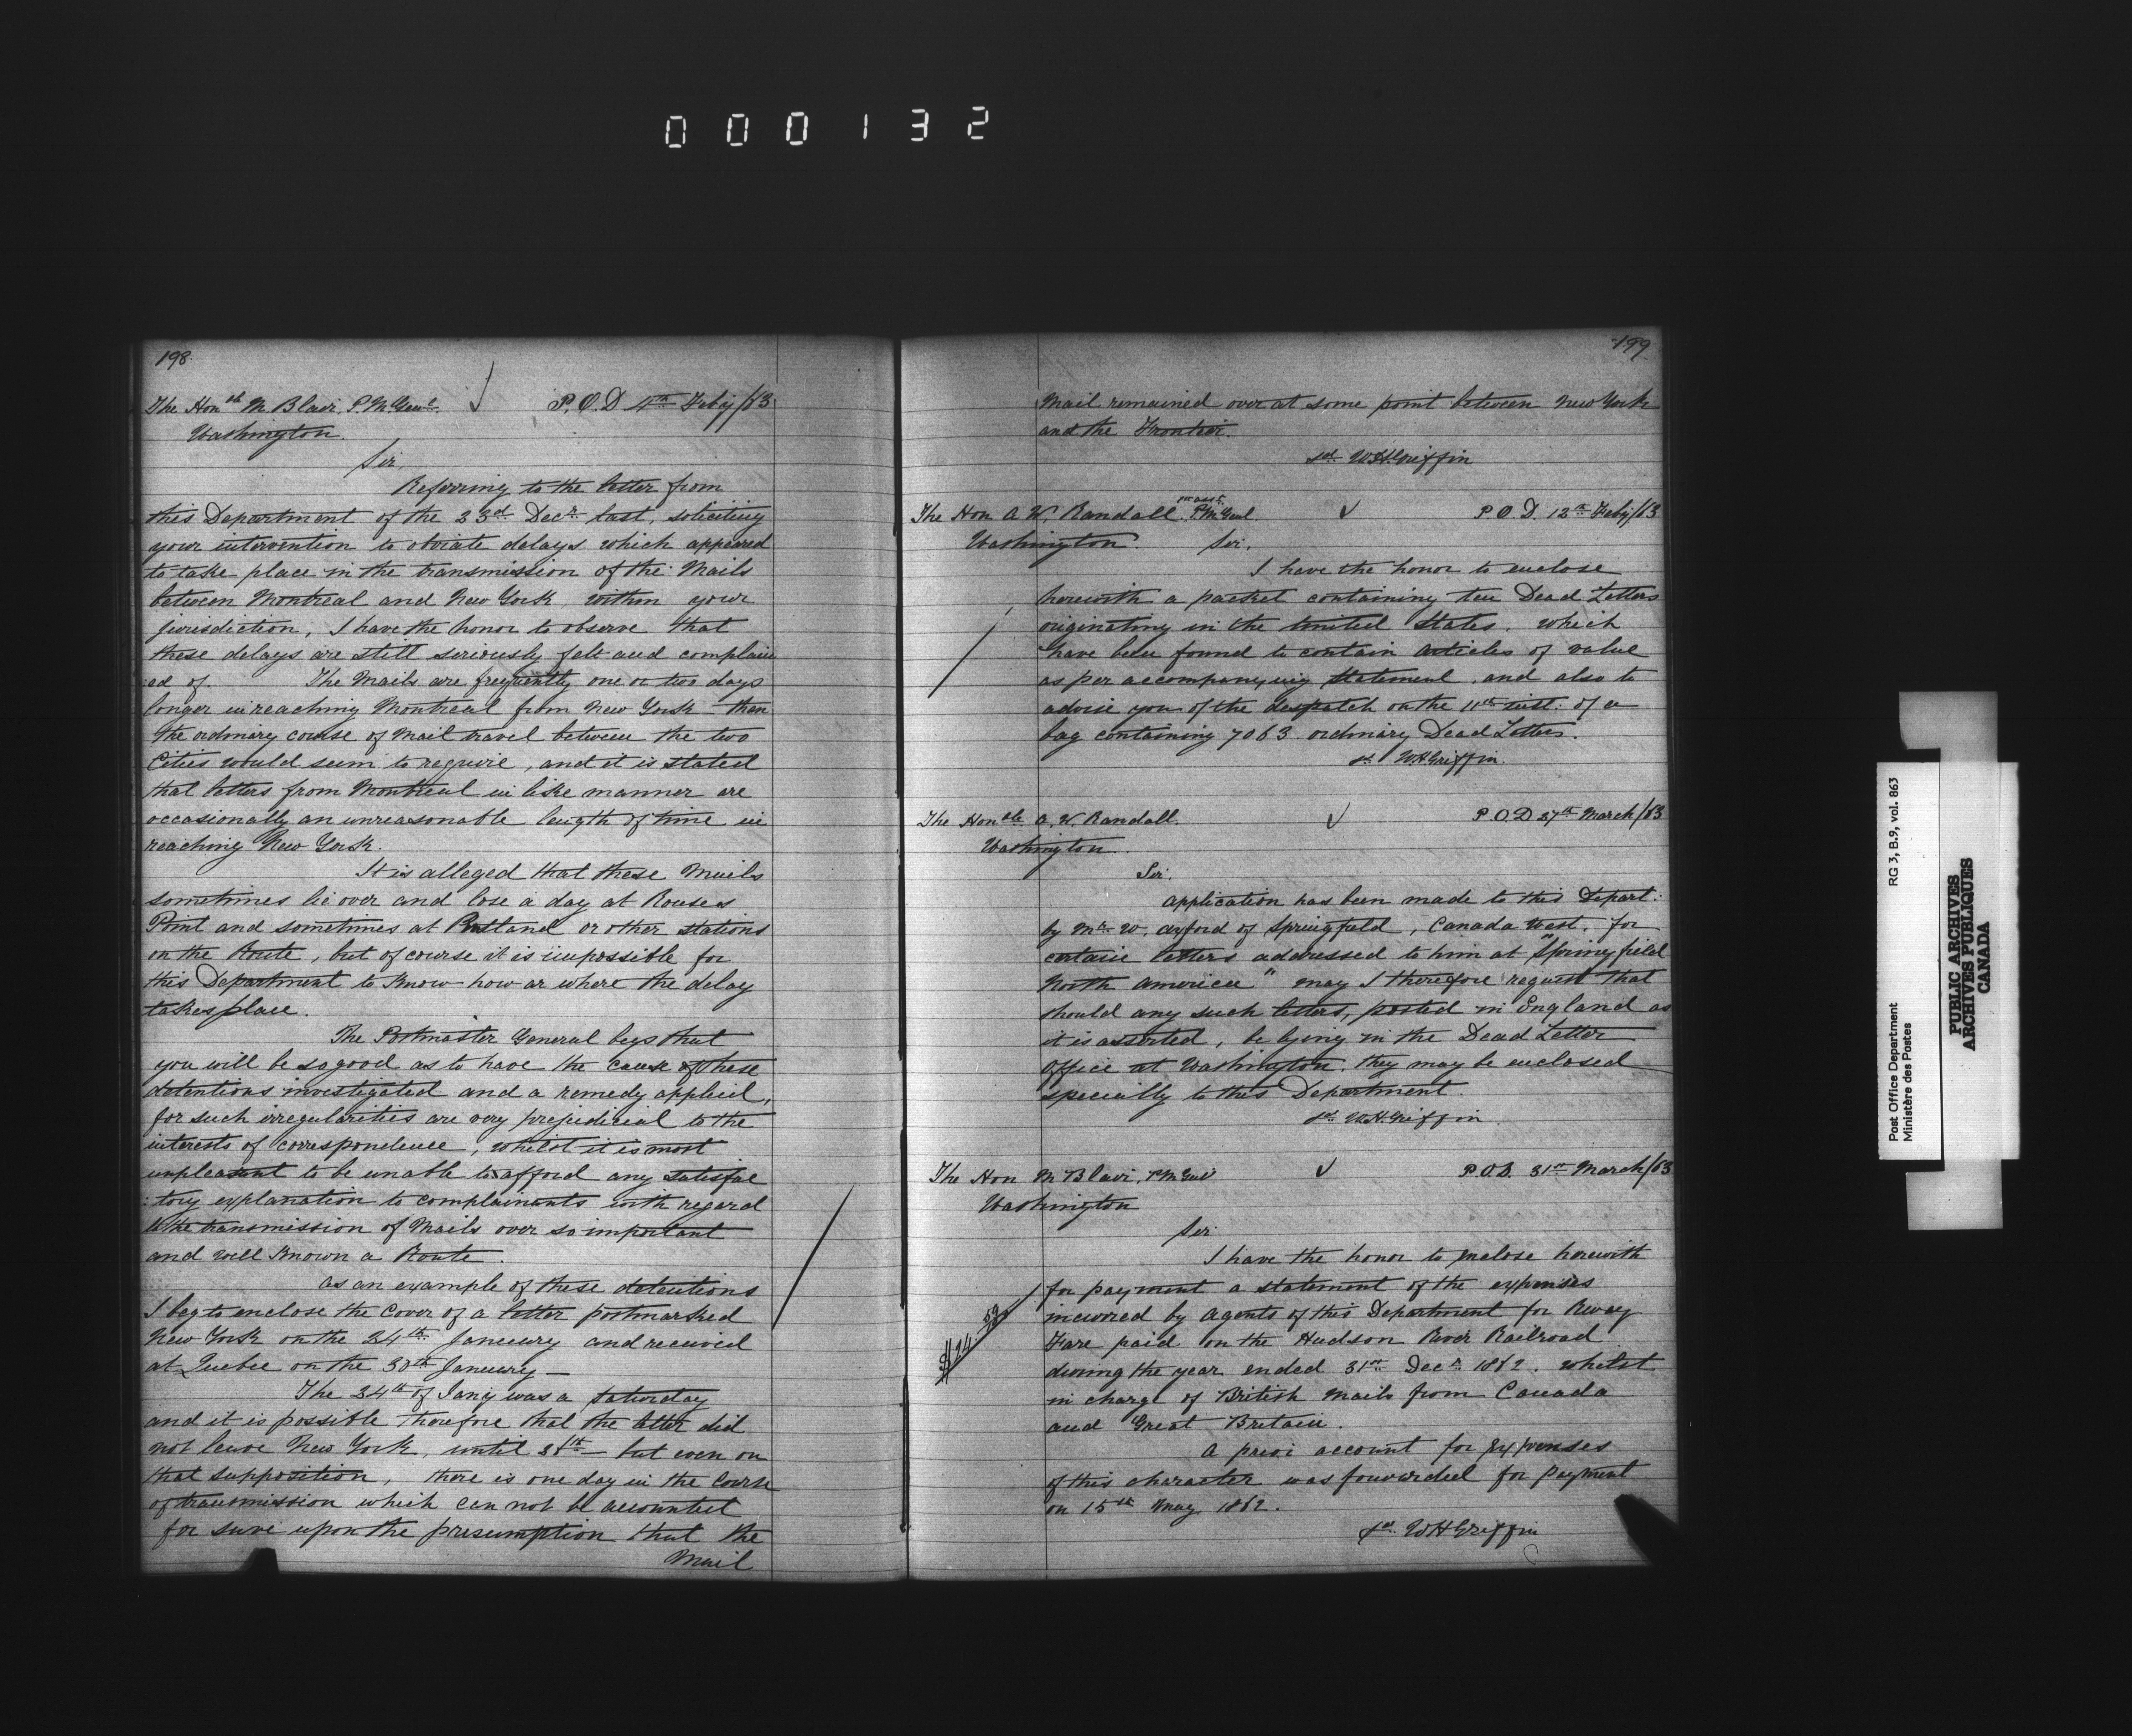 000132
198
The Honble M. Blair, P.M. Genl. P.O.D 4th Feby/63
Washington.
Sir,
Referring to the letter from
this Department of the 23rd Decr last, soliciting
your intervention to obviate delays which appeared
to take place in the transmission of the Mails
between Montreal and New York, within your
jurisdiction, I have the honor to observe that
these delays are still seriously felt and complain
:ed of. The Mails are frequently one or two days
longer in reaching Montreal from New York than
the ordinary course of Mail travel between the two
Cities would seem to require, and it is stated
that letters from Montreal in like manner are
occasionally an unreasonable length of time in
reaching New York.
It is alleged that these Mails
sometimes lie over and lose a day at Rouses
Point and sometimes at Rutland or other stations
on the Route, but of course it is impossible for
this Department to know how or where the delay
takes place.
The Postmaster General begs that
you will be so good as to have the cause of these
detentions investigated and a remedy applied,
for such irregularities are very prejudicial to the
interests of correspondence, whilst it is most
unpleasant to be unable to afford any satisfac
:tory explanation to complainants with regard
to the transmission of Mails over so important
and well known a Route.
As an example of these detentions
I beg to enclose the cover of a letter postmarked
New York on the 24th January and received
at Quebec on the 30th January—
The 24th of Jany was a Saturday
and it is possible therefore that the letter did
not leave New York, until 26th— but even on
that supposition, there is one day in the course
of transmission which can not be accounted
for save upon the presumption that the
Mail
199
Mail remained over at some point between New York
and the Frontier.
sd. W.H. Griffin
The Hon. A. W. Randall 1st asst. P.M. Genl. P.O.D. 12th Feby/63
Washington. Sir,
I have the honor to enclose
herewith a packet containing ten Dead Letters
originating in the United States, which
have been found to contain articles of value
as per accompanying statement, and also to
advise you of the despatch on the 11th inst: of a
bag containing 7063 ordinary Dead Letters.
sd. W.H. Griffin.
The Honble A. W. Randall. P.O.D 27th March/63
Washington.
Sir,
Application has been made to this Depart:
by Mr. W. Axford of Springfield, Canada West, for
certain letters addressed to him at "Springfield
North America" may I therefore request that
should any such letters, posted in England as
it is asserted, be lying in the Dead Letter
Office at Washington, they may be enclosed
specially to this Department.
sd. W.H. Griffin.
The Hon M Blair, P.M Genl P.O.D. 31st March/63
Washington
Sir
I have the honor to enclose herewith
for payment a statement of the expenses
incurred by Agents of this Department for Rway
Fare paid on the Hudson River Railroad
during the year ended 31st Decr. 1862. whilst
in charge of British Mails from Canada
and Great Britain.
A prior account for expenses
of this character was forwarded for payment
on 15th May 1862.
sd. W H Griffin
RG 3, B.9, vol. 863
Post Office Department
Ministère des Postes
PUBLIC ARCHIVES
ARCHIVES PUBLIQUES
CANADA